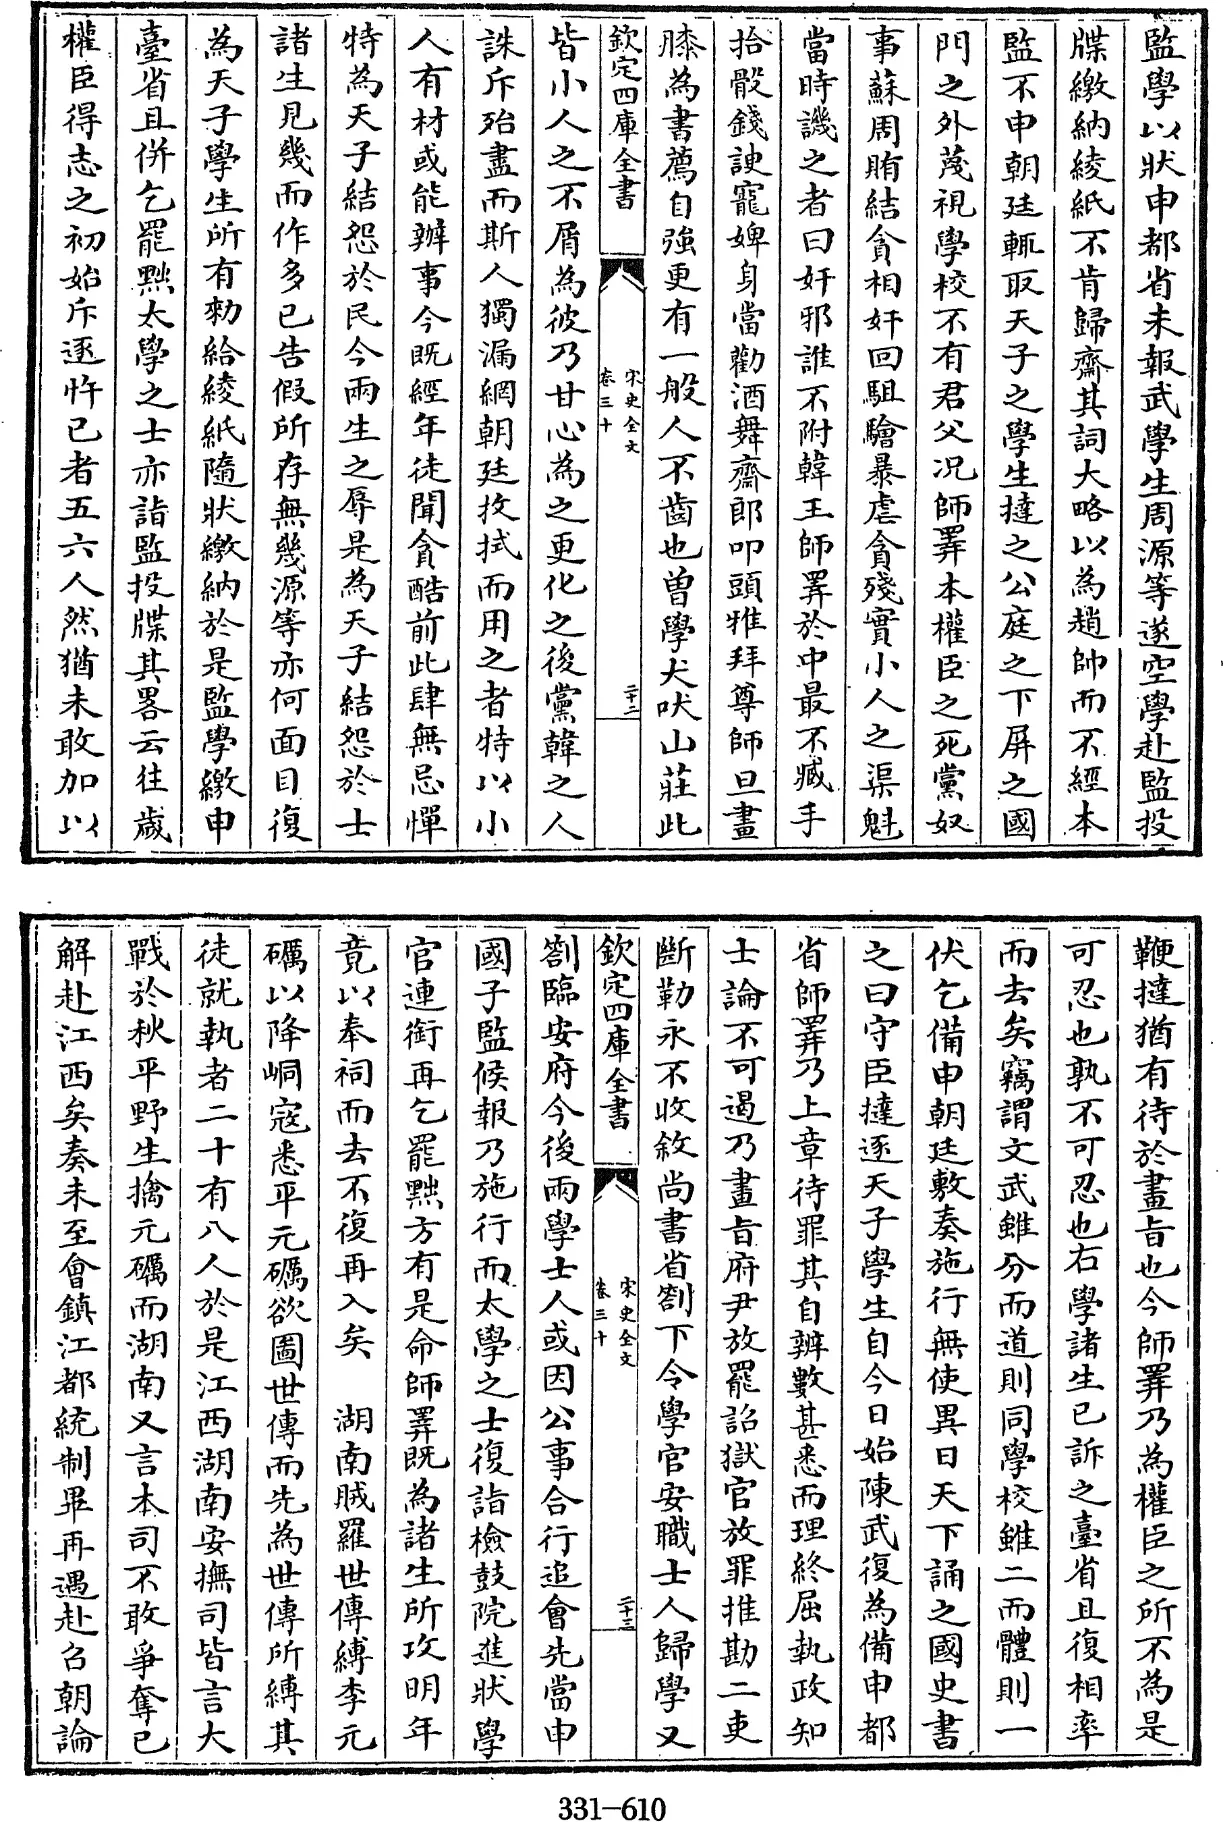 監學以狀申都省未報武學生周源等遂空學赴監投
牒繳納綾紙不肯歸齋其詞大略以為趙帥而不經本
監不申朝廷輒取天子之學生撻之公庭之下屏之國
門之外蔑視學校不有君父況師𢍰本權臣之死黨奴
事蘇周賄結貪相奸回駔驗暴虐貪殘實小人之渠魁
當時譏之者曰奸邪誰不附韓王師𢍰於中最不臧手
拾骰錢諛寵婢身當勸酒舞齋郎叩頭雅拜尊師旦晝
膝為書薦自強更有一般人不齒也曽學犬吠山莊此
欽定四庫全書
宋史全文
卷三十
二十二
皆小人之不屑為彼乃甘心為之更化之後黨韓之人
誅斥殆盡而斯人獨漏網朝廷抆拭而用之者特以小
人有材或能辦事今既經年徒聞貪酷前此肆無忌憚
特為天子結怨於民今兩生之辱是為天子結怨於士
諸生見幾而作多已告假所存無幾源等亦何面目復
為天子學生所有勑給綾紙隨狀繳納於是監學繳申
臺省且併乞罷黜太學之士亦詣監投牒其畧云往歲
權臣得志之初始斥逐忤已者五六人然猶未敢加以
鞭撻猶有待於畫旨也今師𢍰乃為權臣之所不為是
可忍也孰不可忍也右學諸生已訴之臺省且復相率
而去矣竊謂文武雖分而道則同學校雖二而體則一
伏乞備申朝廷敷奏施行無使異日天下誦之國史書
之曰守臣撻逐天子學生自今日始陳武復為備申都
省師𢍰乃上章待罪其自辨數甚悉而理終屈執政知
士論不可遏乃畫旨府尹放罷詔獄官放罪推勘二吏
斷勒永不收敘尚書省劄下令學官安職士人歸學又
欽定四庫全書
宋史全文
卷三十
二十三
劄臨安府今後兩學士人或因公事合行追會先當申
國子監候報乃施行而太學之士復詣檢鼓院進狀學
官連銜再乞罷黜方有是命師𢍰既為諸生所攻明年
竟以奉祠而去不復再入矣　湖南賊羅世傳縛李元
礪以降峒寇悉平元礪欲圖世傳而先為世傳所縛其
徒就執者二十有八人於是江西湖南安撫司皆言大
戰於秋平野生擒元礪而湖南又言本司不敢爭奪已
解赴江西矣奏未至會鎮江都統制畢再遇赴召朝論
331-610